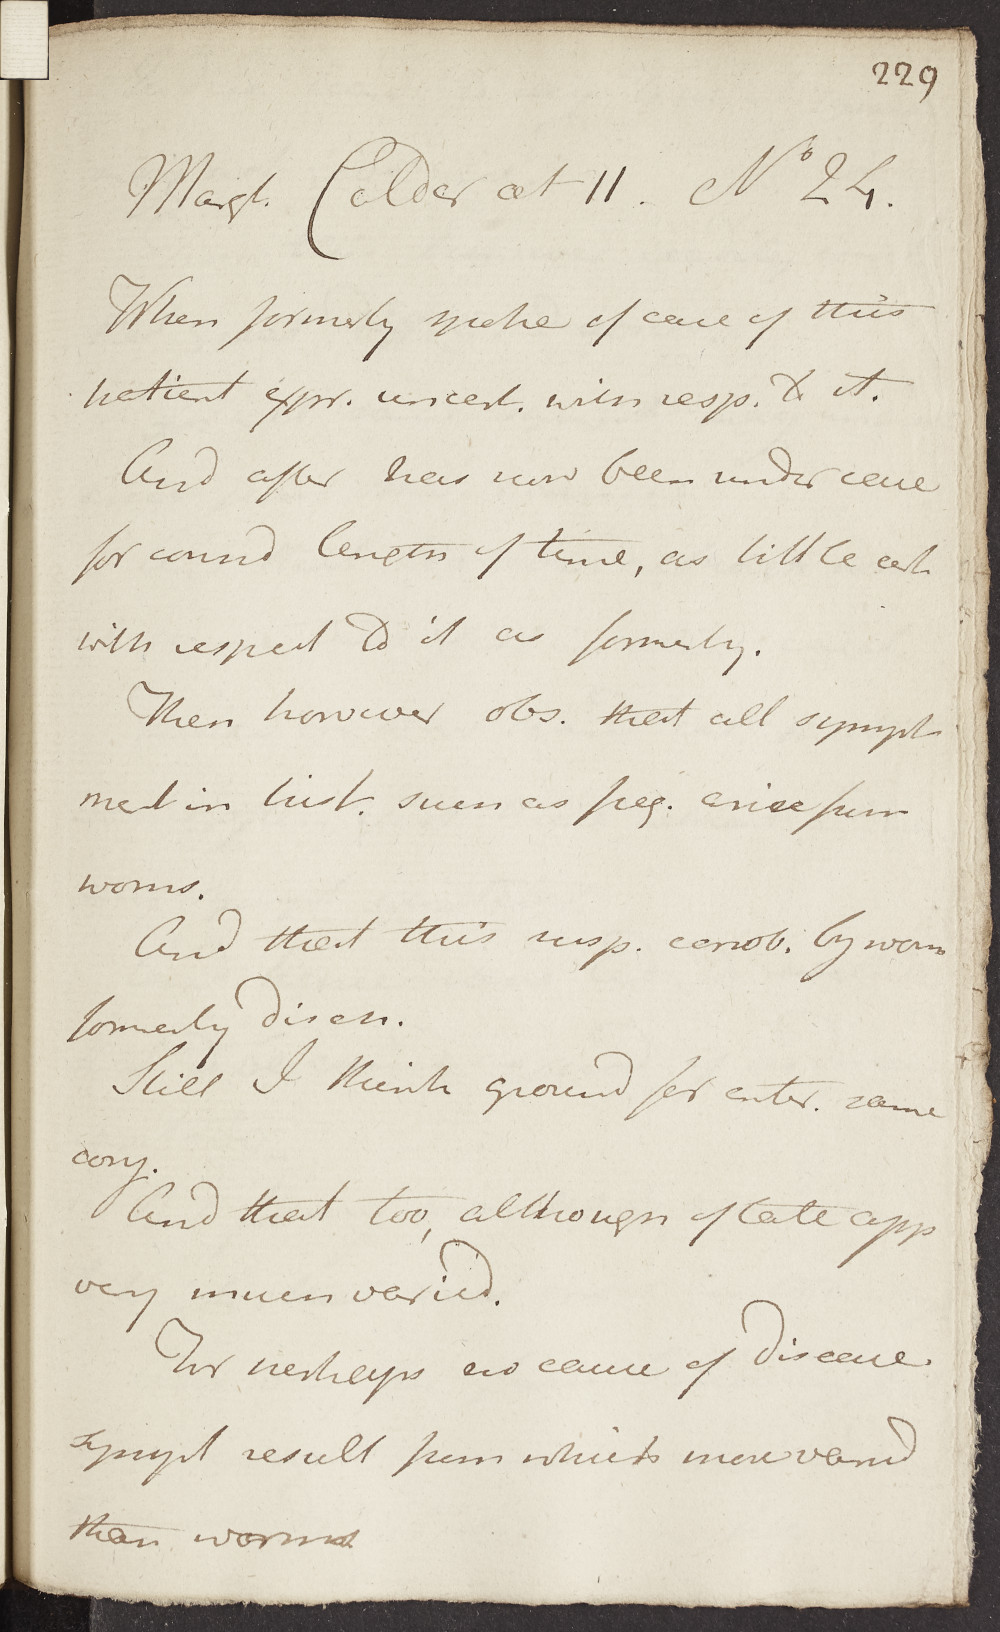 229
Margt. Calder æt 11. No 24.
When formerly spoke of case of this
patient expr. uncert. with resp. to it.
And after has now been under care
for consid length of time, as little cert
with respect to it as formerly.
Then however obs. that all sympt
med in hist. such as freq. arise from
worms.
And that this susp. corrob. by worm
formerly disch.
Still I think ground for enter. same
conj.
And that too, although of late app
very much varied.
For perhaps no cause of disease
sympt result from which more varied
than worms